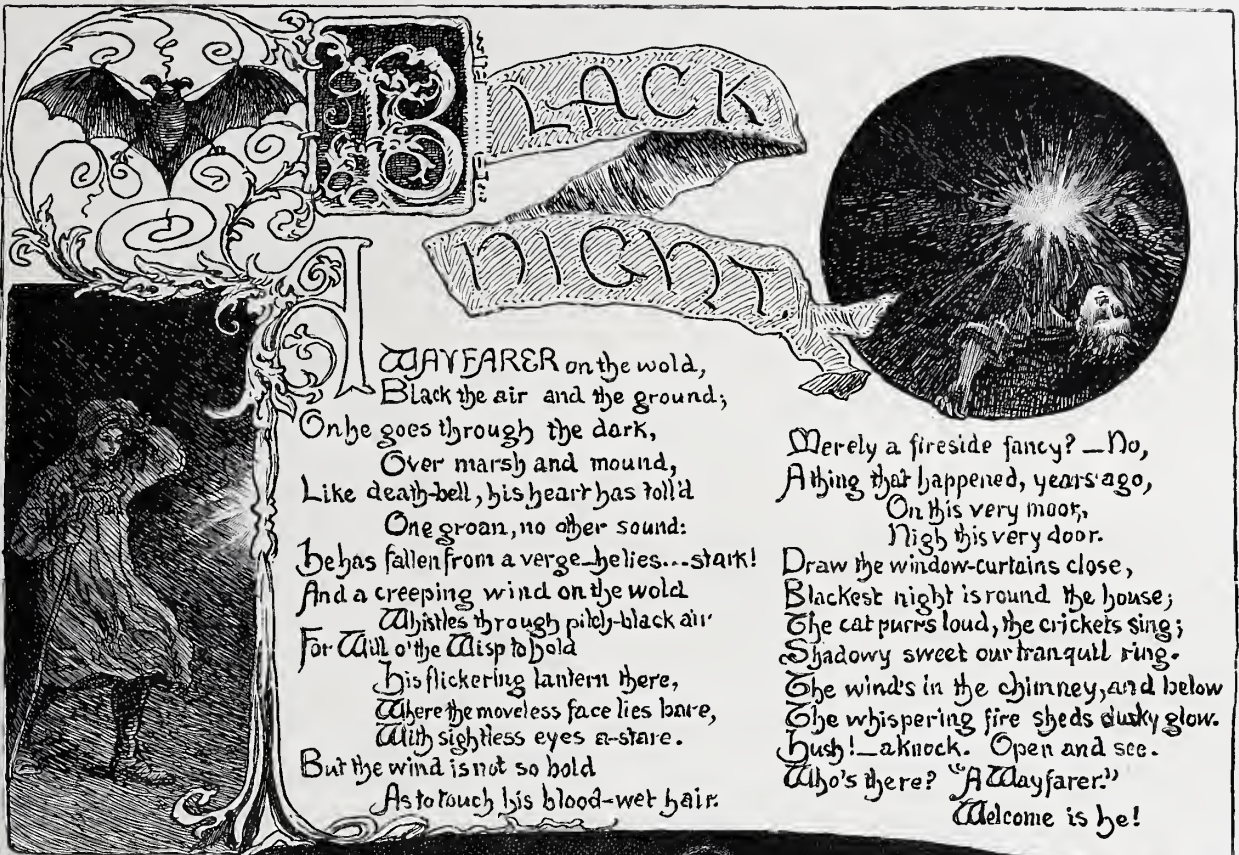 BLACK
NIGHT.
A WAYFARER on the wold,
Black the air and the ground;
On he goes through the dark,
Over marsh and mound,
Like death-bell, his heart has toll'd
One groan, no other sound:
He has fallen from a verge—he lies...stark!
And a creeping wind on the wold
Whistles through pitch-black air
For Will o' the Wisp to hold
His flickering lantern there,
Where the moveless face lies bare,
With sightless eyes a-stare.
But the wind is not so bold
As to touch his blood-wet hair.
Merely a fireside fancy?—No,
A thing that happened, years ago,
On this very moor,
Nigh this very door.
Draw the window-curtains close,
Blackest night is round the house;
The cat purrs loud, the crickets sing;
Shadowy sweet our tranquil ring.
The wind's in the chimney, and below
The whispering fire sheds dusky glow.
Hush!—a knock. Open and see.
Who's there? "A Wayfarer."
Welcome is he!